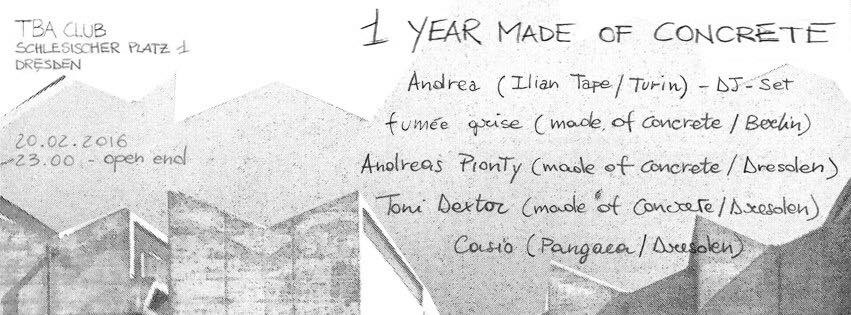 TBA CLUB
SCHLESISCHER PLATZ 1
DRESDEN
20.02.2016
23.00 - open end
1 YEAR MADE OF CONCRETE
Andrea (Ilian Tape/Turin) - DJ-Set
fumée grise (made of concrete/Berlin)
Andreas Pionty (made of concrete/Dresden)
Toni Dextor (made of concrete/Dresden)
Casio (Pangaea/Dresden)